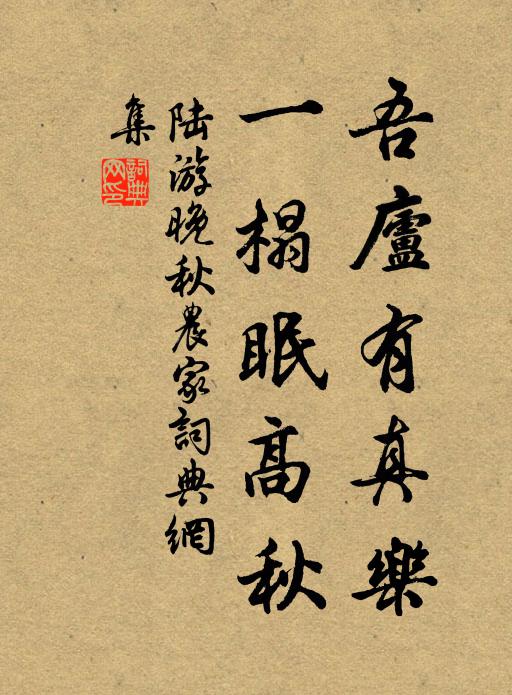 吾廬有真樂
一榻眠高秋
陸游晚秋農家詞典網
集
詞典
网印